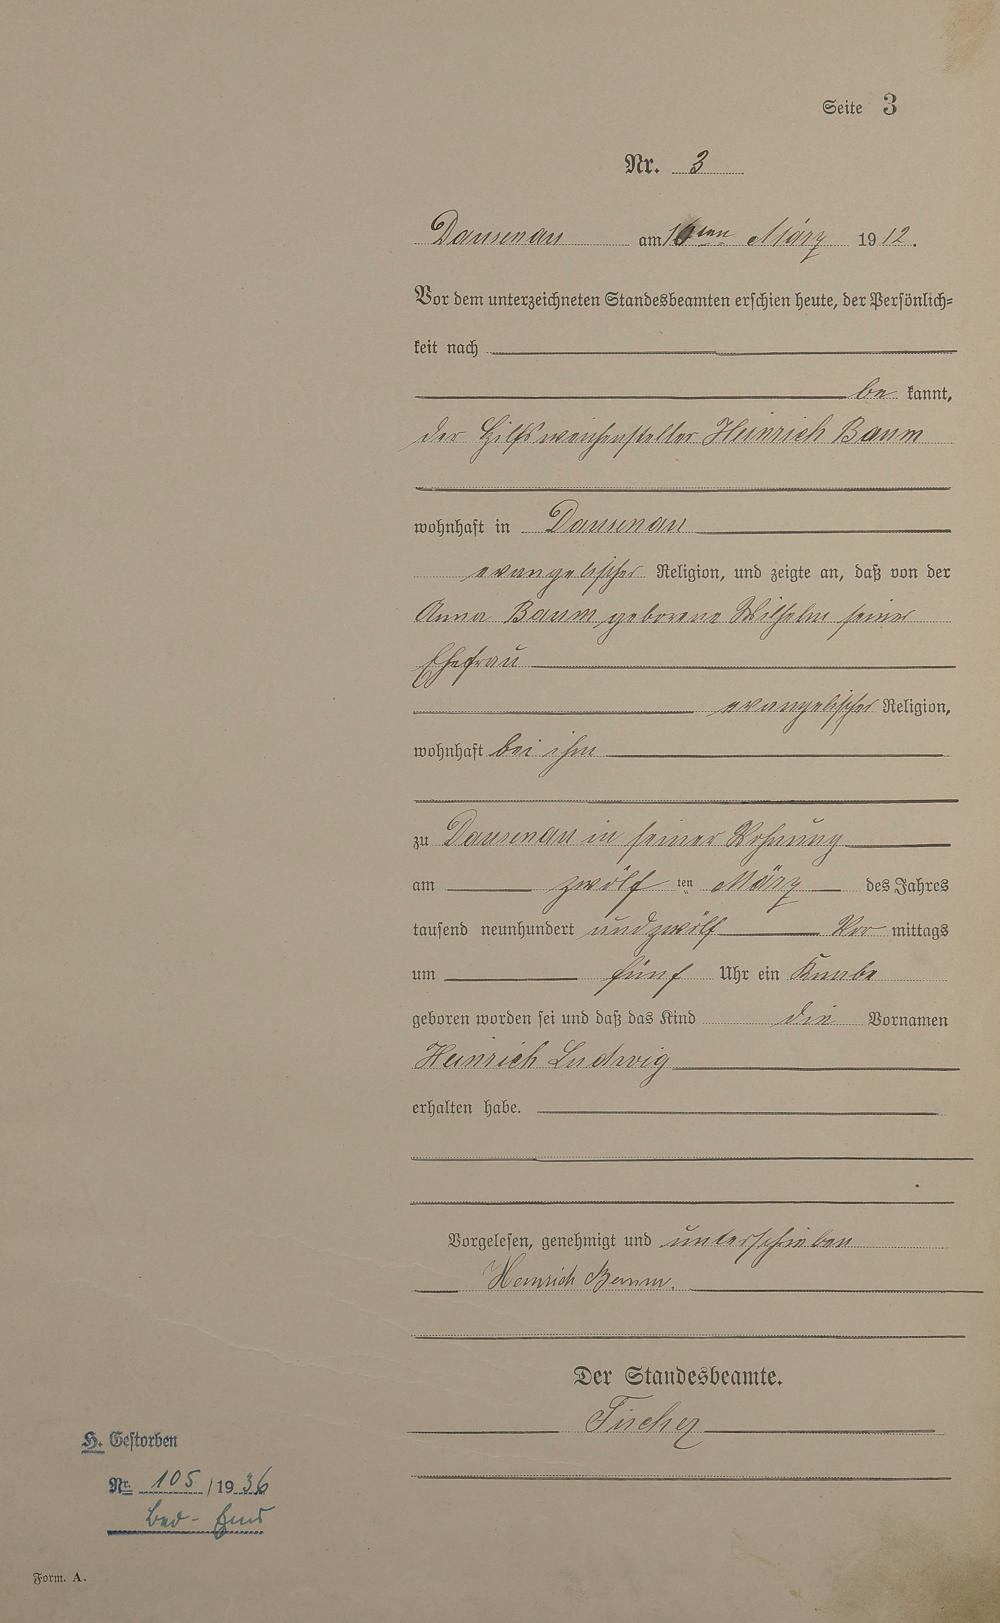 Seite 3
Nr. 3
Dausenau am 16ten März 1912.
Vor dem unterzeichneten Standesbeamten erschien heute, der Persönlich=
keit nach
be kannt,
der Hilfsweichensteller Heinrich Baum
wohnhaft in Dausenau
evangelischer Religion, und zeigte an, daß von der
Anna Baum geborene Wilhelm seiner
Ehefrau
evangelischer Religion,
wohnhaft bei ihm
zu Dausenau in seiner Wohnung
am zwölf ten März des Jahres
tausend neunhundert und zwölf Vor mittags
um fünf Uhr ein Knabe
geboren worden sei und daß das Kind die Vornamen
Heinrich Ludwig
erhalten habe.
Vorgelesen, genehmigt und unterschrieben
Heinrich Baum.
Der Standesbeamte.
Fischer
H. Gestorben
Nr. 105 / 19 36
Bad-Ems
Form. A.